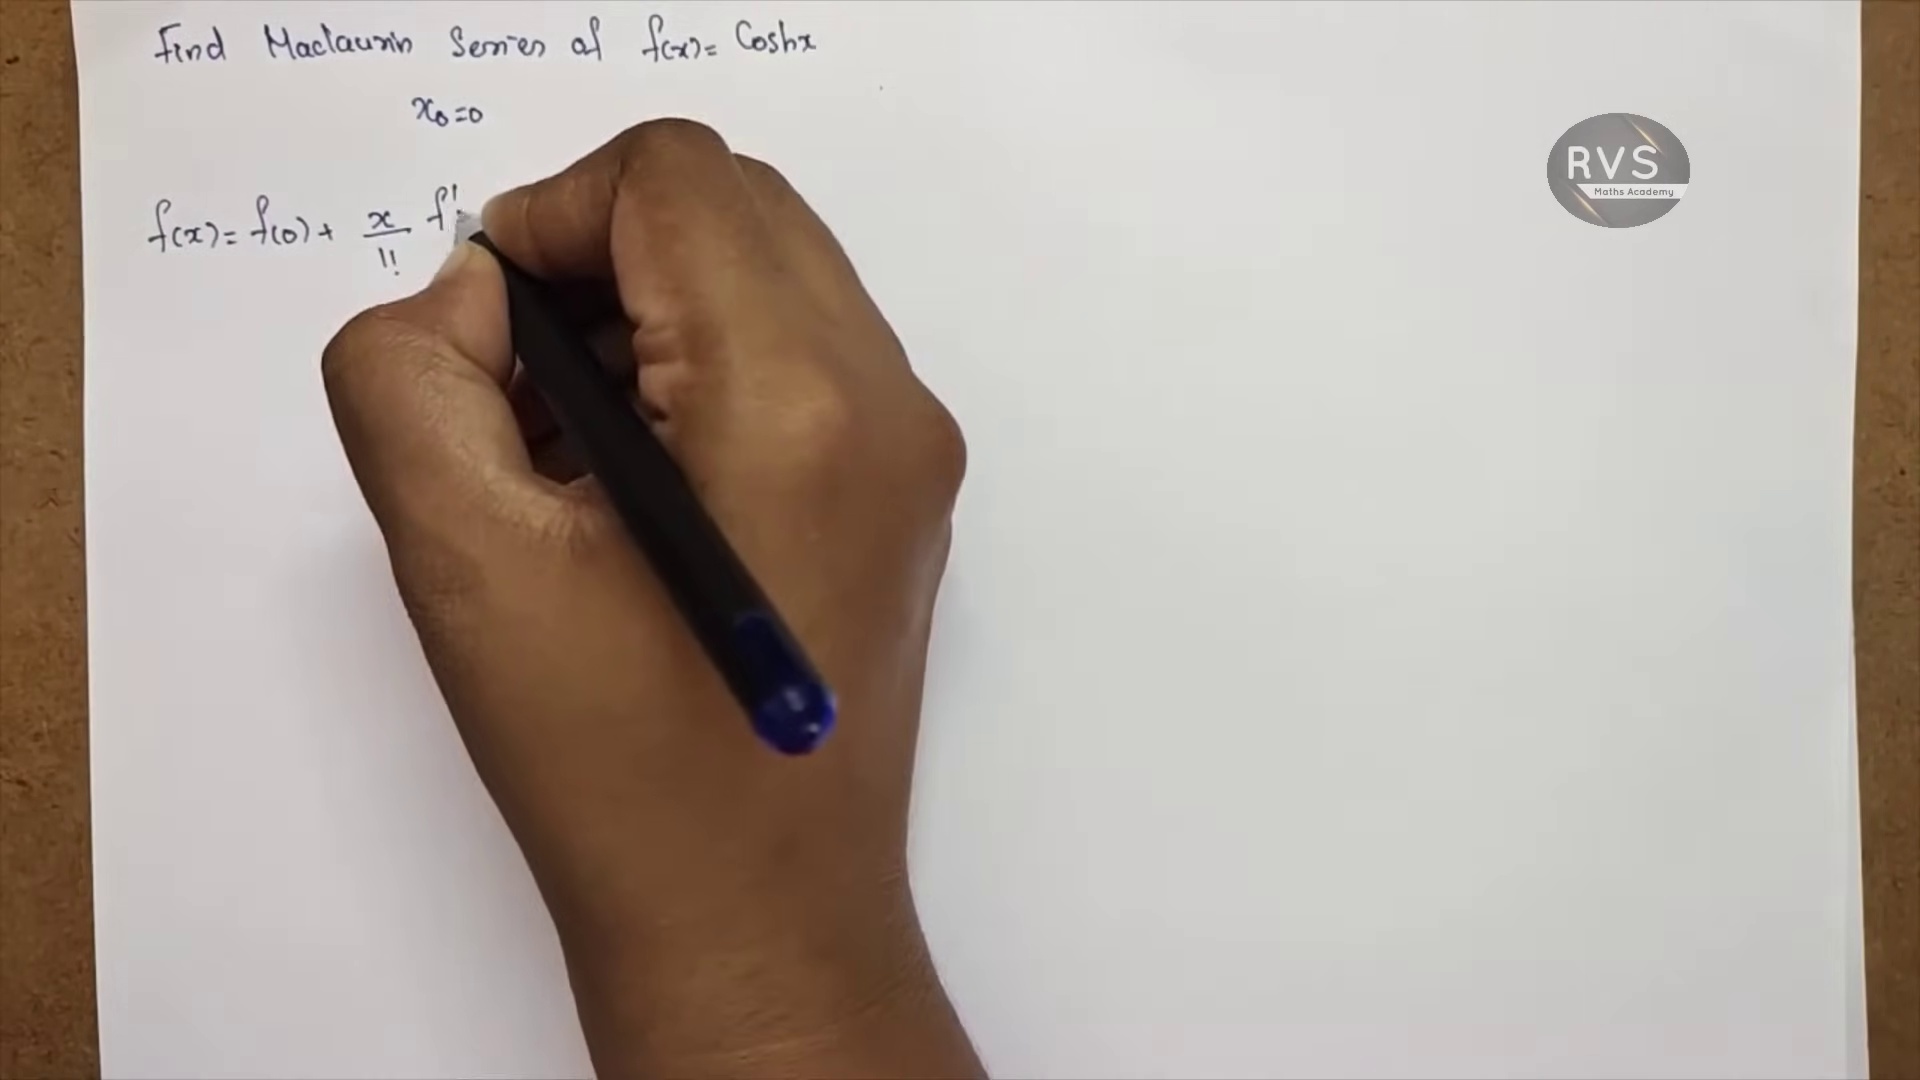 Find Maclaurin Series of f(x)= Coshx
x₀=0
f(x)= f(0)+ x/1! f'
RVS
Maths Academy